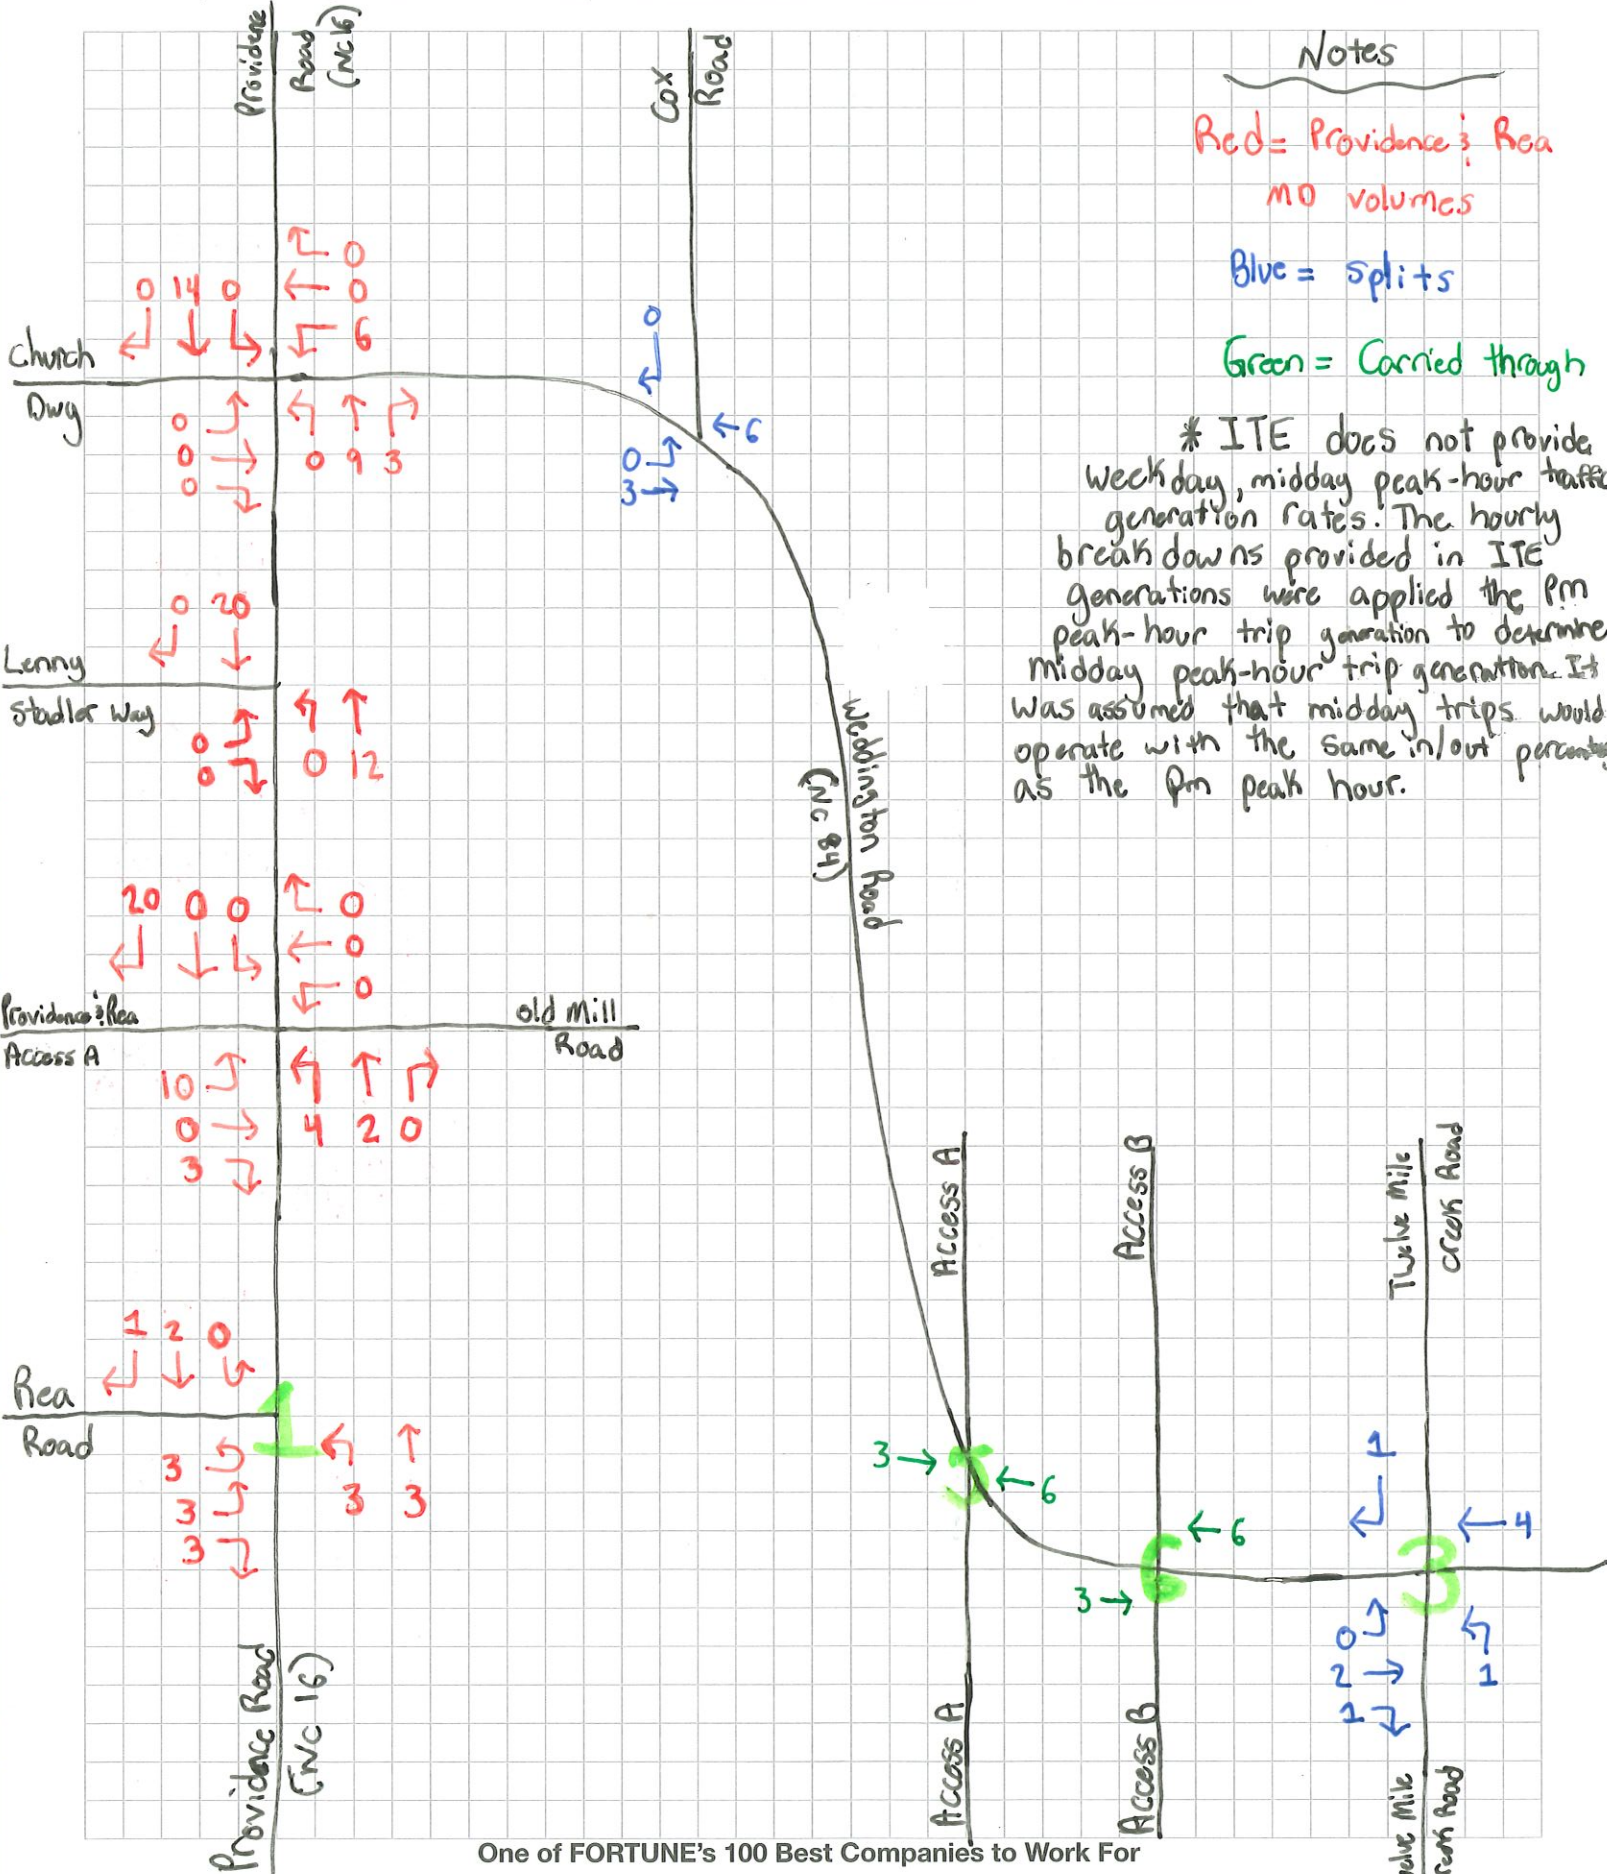 Providence
Road
(NC16)
Cox
Road
Notes
Red = Providence & Rea
MD volumes
Blue = splits
Green = Carried through
* ITE does not provide
weekday, midday peak-hour
generation rates. The hourly
breakdowns provided in ITE
generations were applied the pm
peak-hour trip generation to determine
midday peak-hour trip generation. It
was assumed that midday trips would
operate with the same in/out
as the pm peak hour.
0
0 14 0
0
6
Church
Dwy
0
0
0
0 9 3
0
6
0
3
0 20
Lenny
Stadler Way
0
0
0 12
Weddington Road
(NC 84)
20 0 0
0
0
0
Providence & Rea
Access A
Old Mill
Road
10
0
3
4 2 0
Access A
Access B
Twelve Mile
Creek Road
1 2 0
Rea
Road
1
3
3
3
3 3
3
5
6
6
6
3
1
4
3
0
2
1
1
Providence Road
(NC 16)
Access A
Access B
Mile
Road
One of FORTUNE's 100 Best Companies to Work For